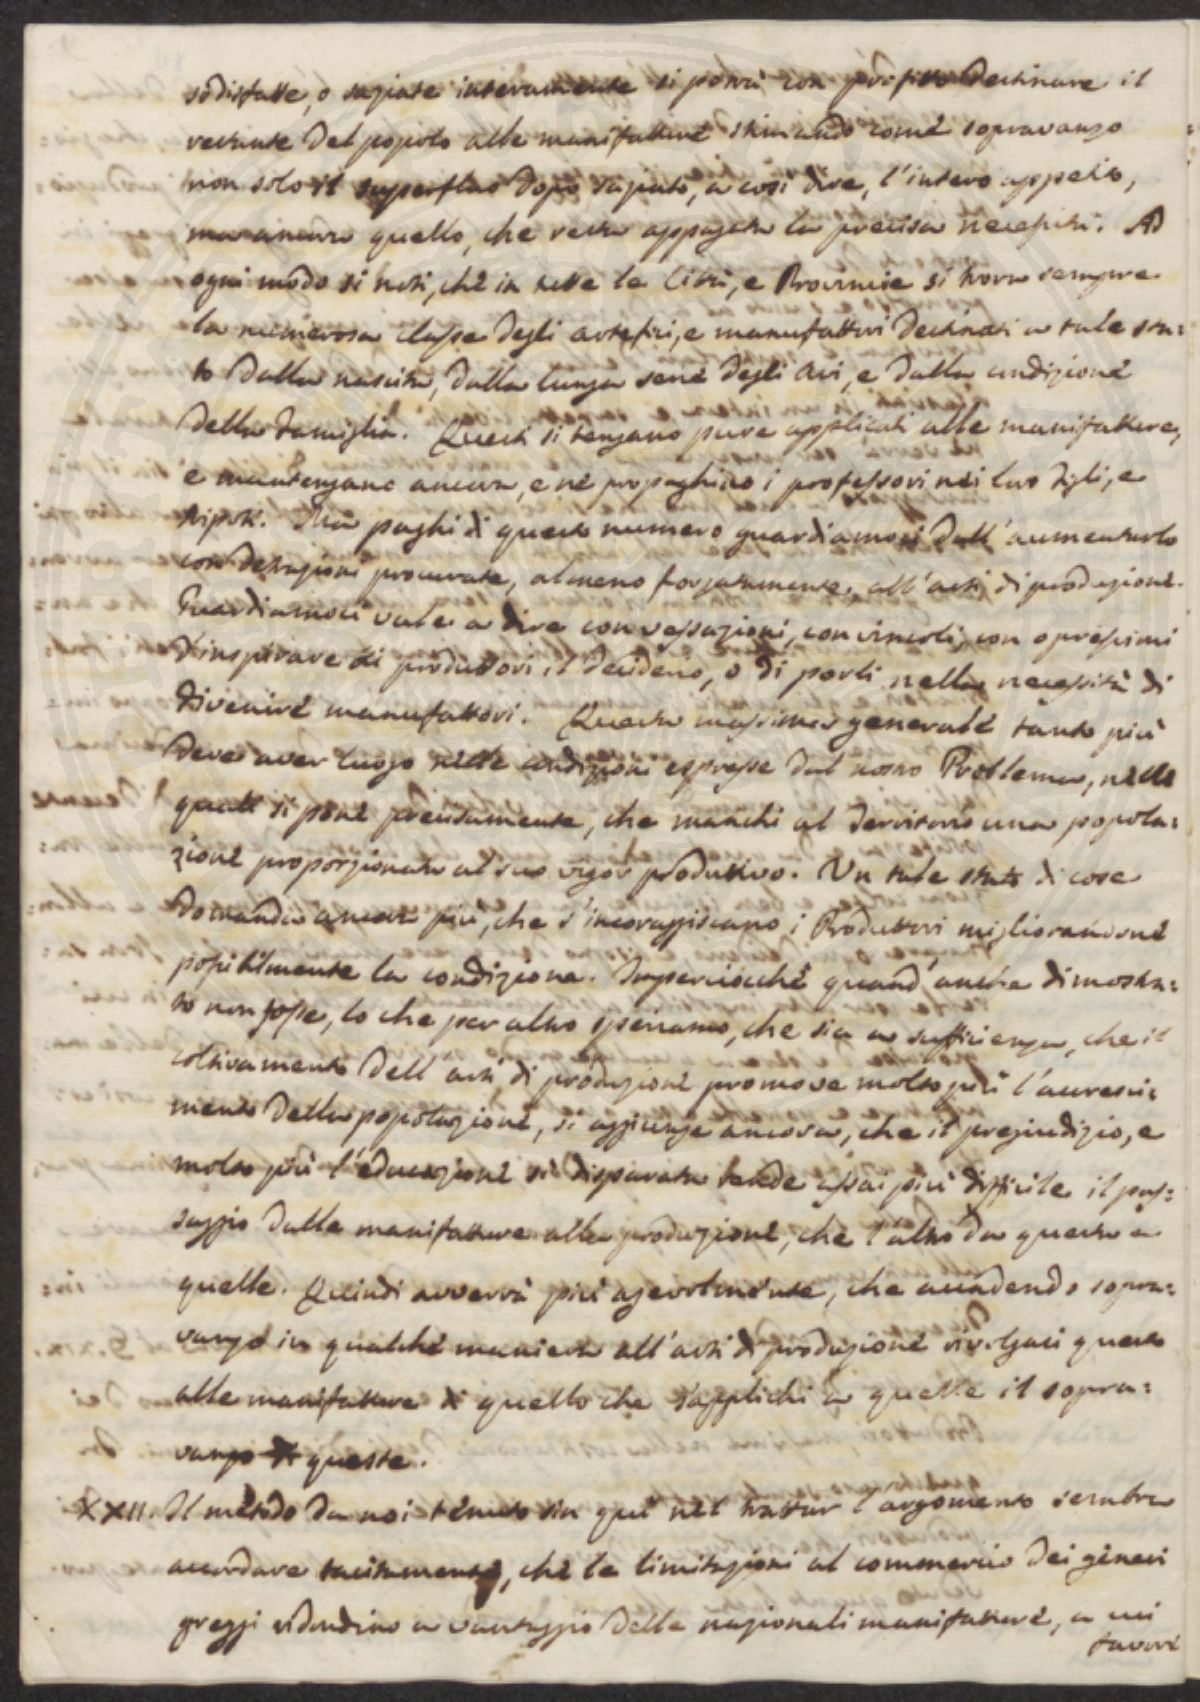 sodisfatte, o saziate interamente si potrà con profitto destinare il
restante del popolo alle manifatture stimando come sopravanzo
non solo il superfluo dopo saziato, a così dire, l'intero appetito,
ma ancora quello, che resta appagata la precisa necessità. Ad
ogni modo si noti, che in tutte le Città, e Provincie si trova sempre
la numerosa classe degli artefici, e manufattori destinati a tale sta=
to dalla nascita, dalla lunga serie degli Avi, e dalla condizione
della famiglia. Questi si tengano pure applicati alle manifatture,
e mantengano ancora, e ne propaghino i professori nei loro figli, e
nipoti. Ma paghi di questo numero guardiamoci dall'aumentarlo
con detrazioni procurate, almeno forzatamente, all'arti di produzione.
Guardiamoci vale a dire con vessazioni, con vincoli, con opressioni
d'inspirare ai produttori il desiderio, o di porli nella necessità di
divenire manufattori. Questa massima generale tanto più
deve aver luogo nelle condizioni espresse dal nostro Problema, nelle
quali si pone precisamente, che manchi al territorio una popola=
zione proporzionata al suo vigor produttivo. Un tale stato di cose
domanda ancor più, che s'incoraggiscano i Produttori migliorandone
possibilmente la condizione. Imperciocchè quand'anche dimostra=
to non fosse, lo che per altro speriamo, che sia a sufficienza, che il
coltivamento dell'arti di produzione promove molto più l'accresci=
mento della popolazione, si aggiunge ancora, che il pregiudizio, e
molto più l'educazione sì disparata rende assai più difficile il pas=
saggio dalle manifatture alla produzione, che l'altro da questa a
quelle. Quindi avverrà più agevolmente, che accadendo sopra=
vanzo in qualche maniera all'arti di produzione rivolgasi questo
alle manifatture di quello che s'applichi a quelle il sopra=
vanzo di queste.
XXII. Il metodo da noi tenuto sin quì nel trattar l'argomento sembra
accordare tacitamente, che le limitazioni al commercio dei generi
greggi ridondino a vantaggio delle nazionali manifatture, a cui
favore